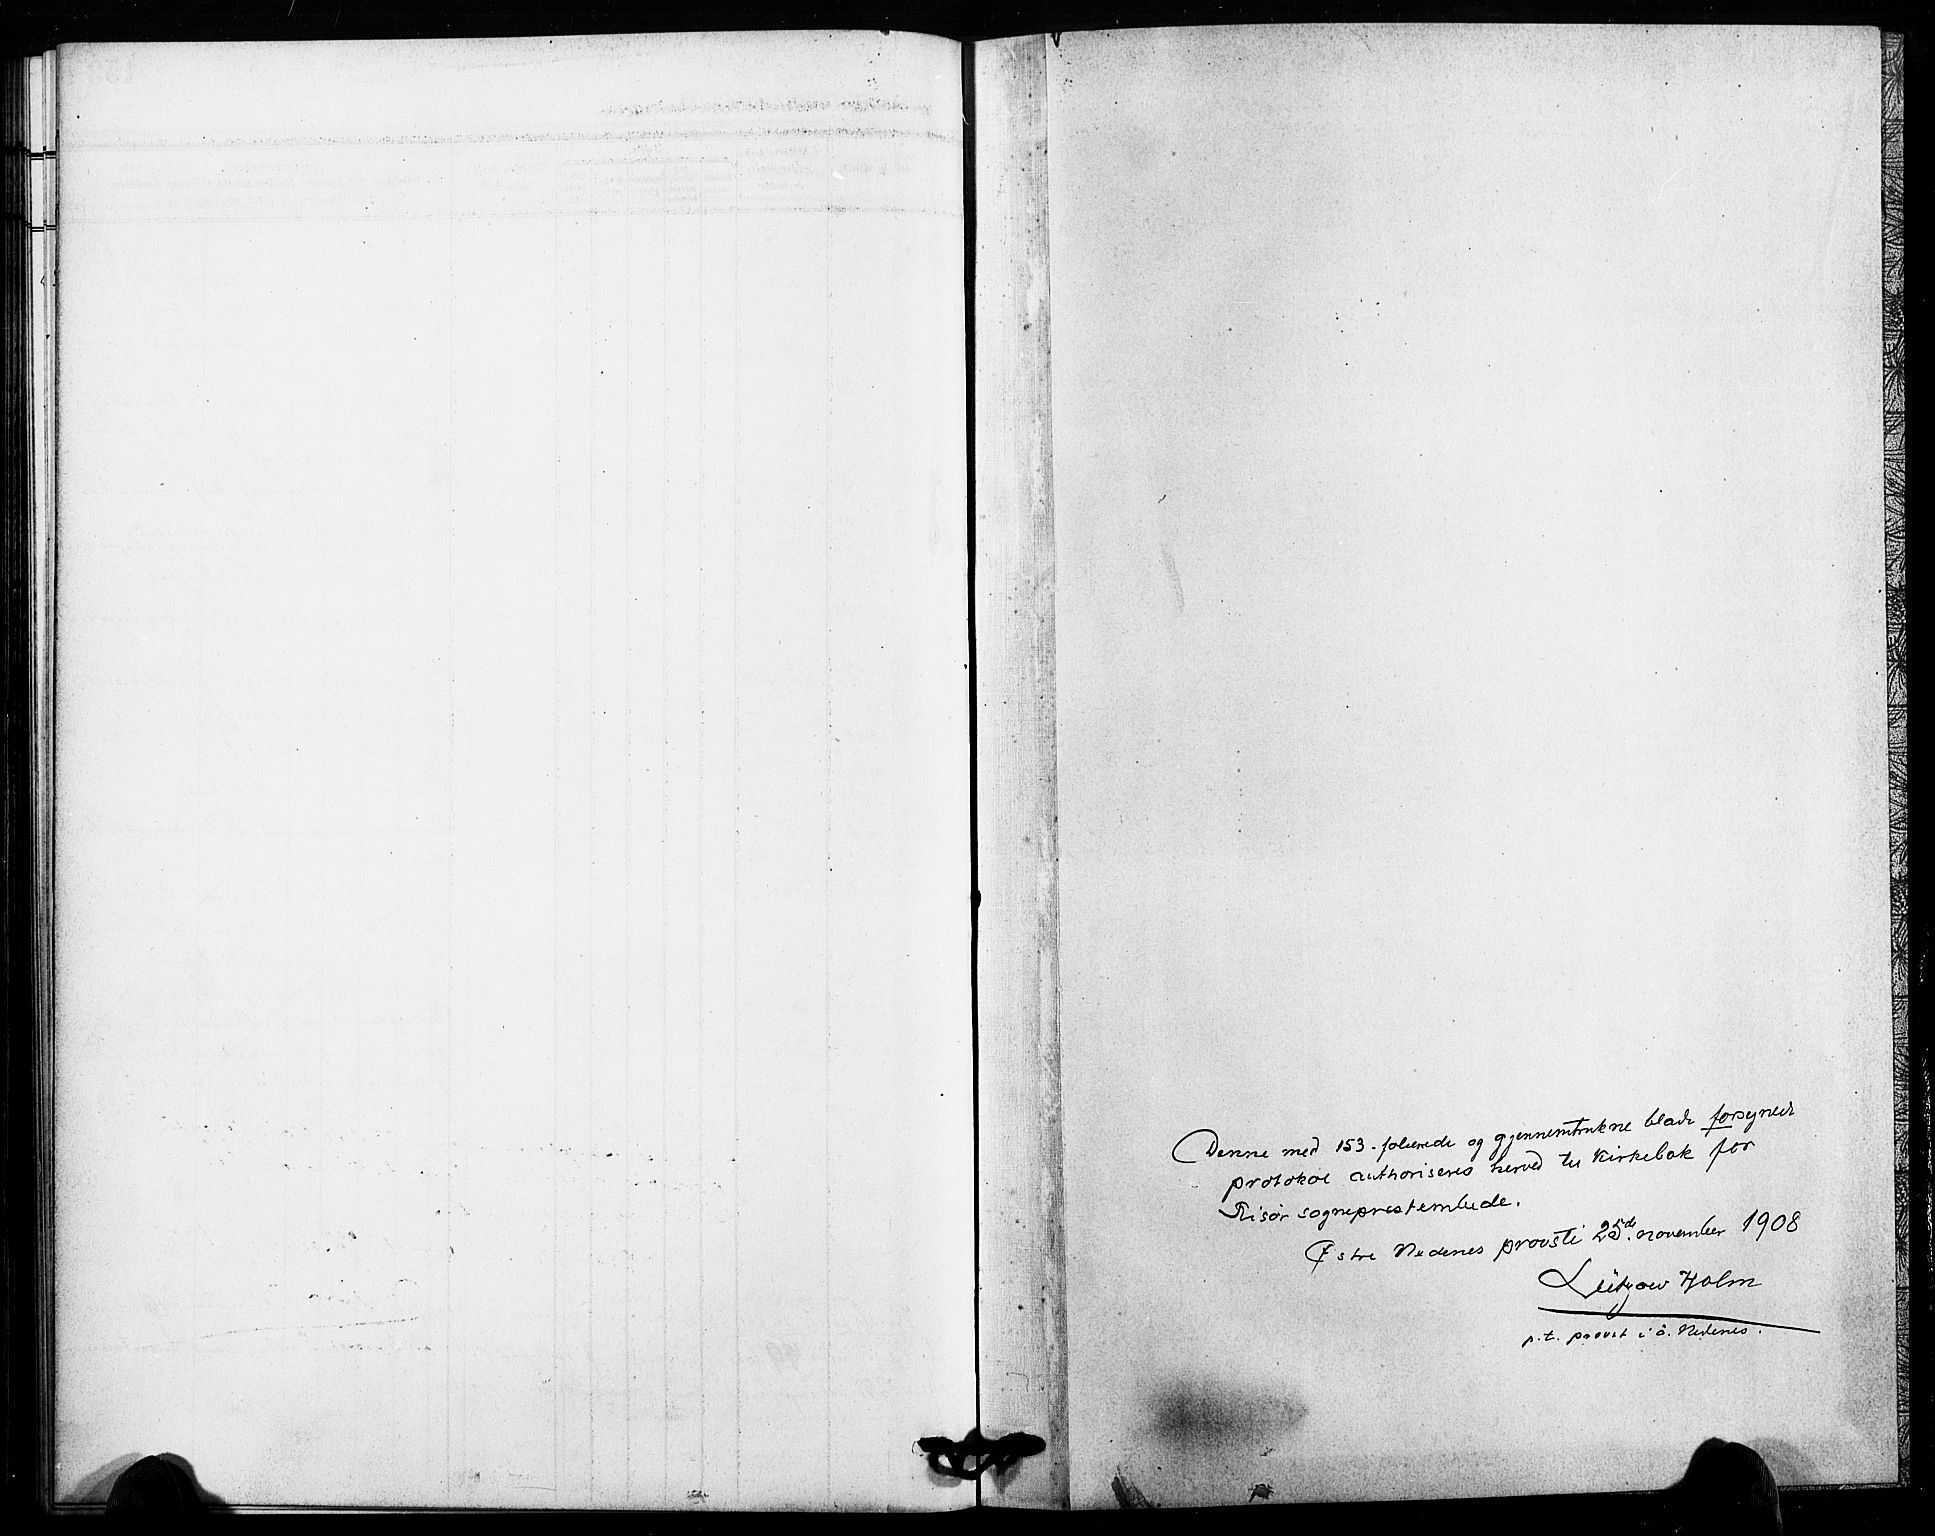 Denne med 153 folierede og gjennemtrukne blade forsynede
protokol authoriseres herved til kirkebok for
Risør sogneprestembede.
Østre Nedenes provsti 25de november 1908
Lützow Holm
p.t. provst i ö. Nedenes.